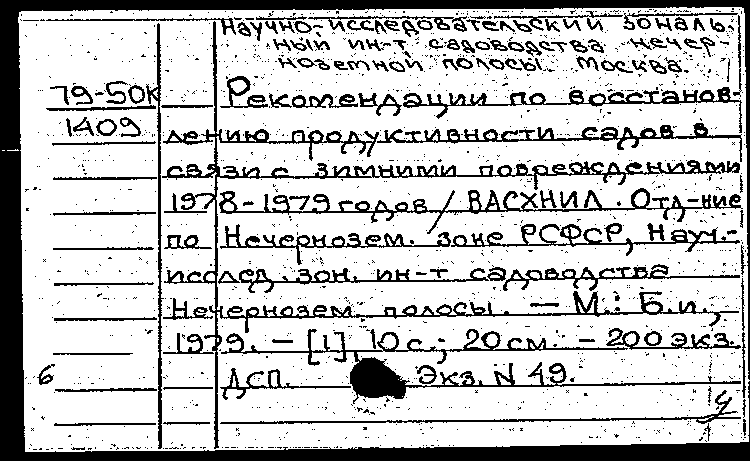 Научно-исследовательский зональ-
ный ин-т садоводства нечер-
ноземной полосы. Москва.
79-50К Рекомендации по восстанов-
1409 лению продуктивности садов в
связи с зимними повреждениями
1978-1979 годов / ВАСХНИЛ. Отд-ние
по Нечернозем. зоне РСФСР, Науч.-
исслед. зон. ин-т садоводства
Нечернозем. полосы. — М.: Б.и.,
1979. — [1], 10 с.; 20 см. - 200 экз.
6 ДСП. Экз. N 49.